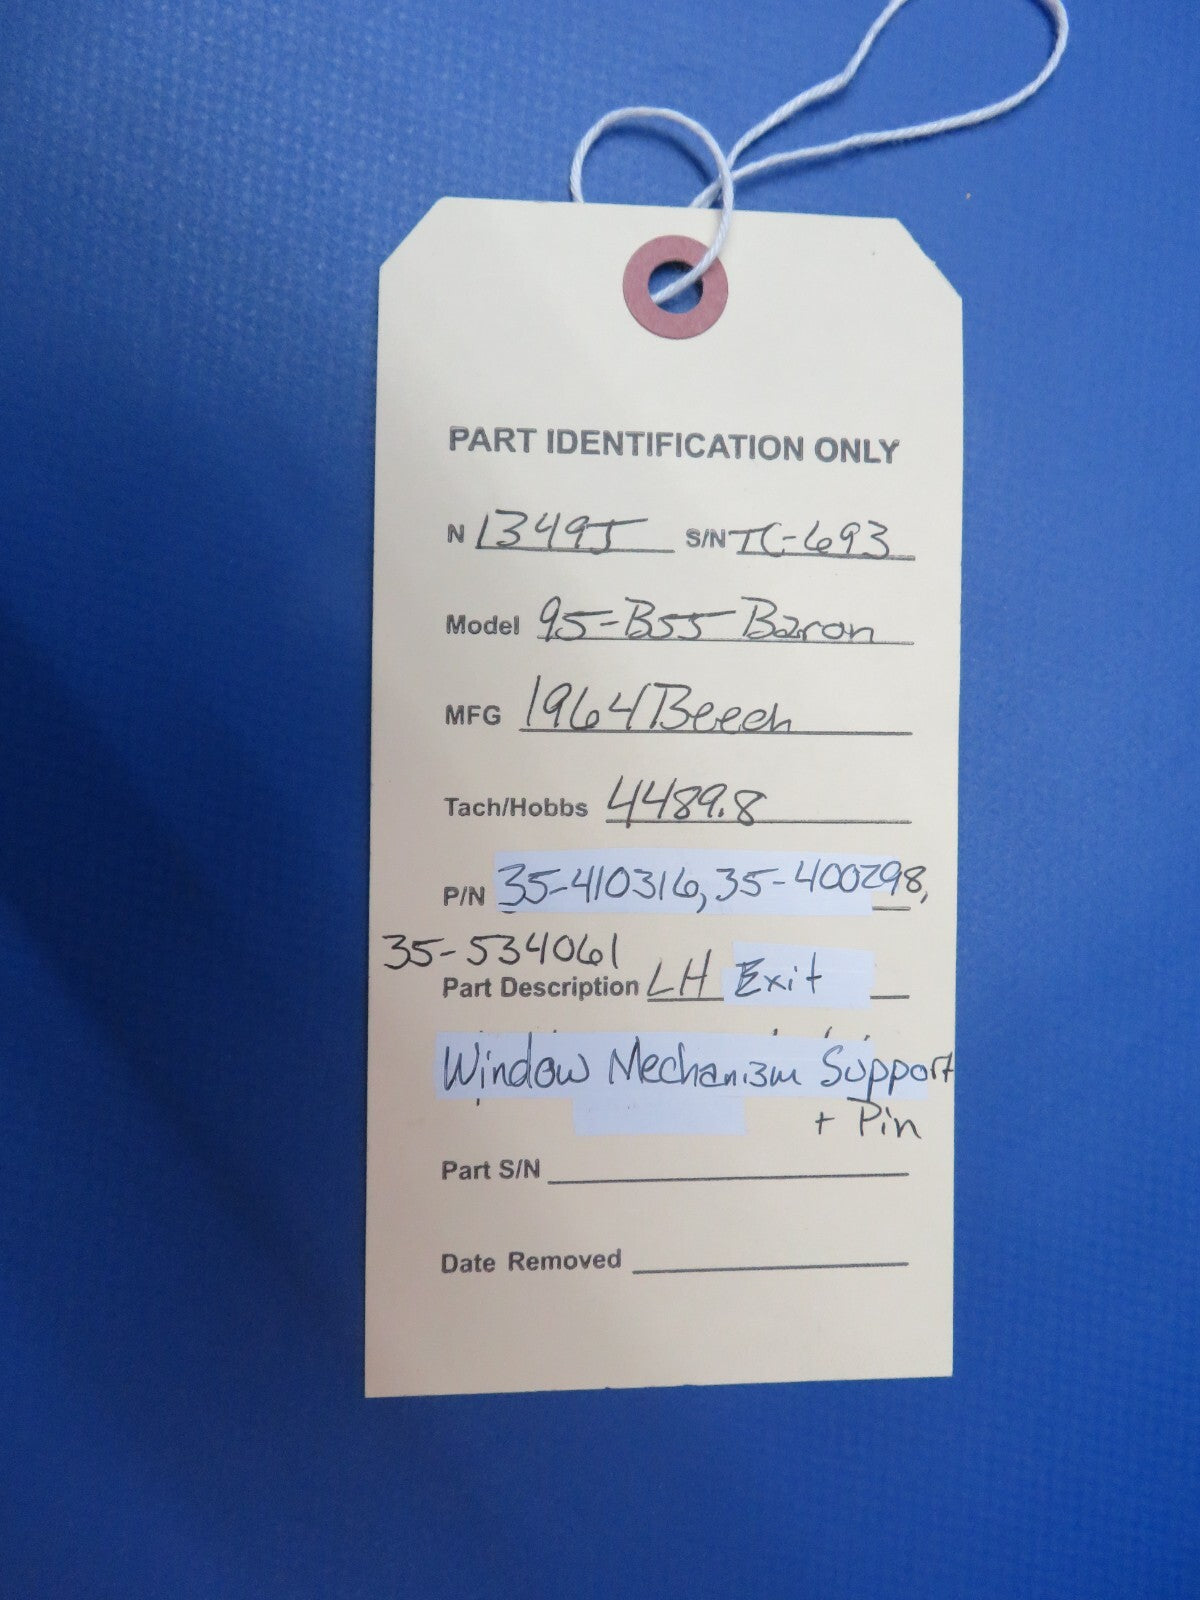 PART IDENTIFICATION ONLY
N 13495 S/N TC-693
Model 95-B55 Baron
MFG 1964 Beech
Tach/Hobbs 4489.8
P/N 35-410316, 35-400298,
35-534061
Part Description LH Exit
Window Mechanism Support
+ Pin
Part S/N
Date Removed